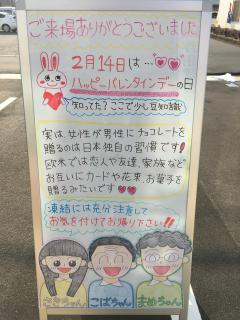 ご来場ありがとうございました
2月14日は…♥♥
ハッピーバレンタインデーの日
知ってた？ここで少し豆知識
実は、女性が男性にチョコレートを
贈るのは日本独自の習慣です！
欧米では恋人や友達、家族など
お互いにカードや花束、お菓子を
贈るみたいです♥♥
凍結には充分注意して
お気を付けてお帰り下さい!!
さきちゃん こばちゃん まめちゃん